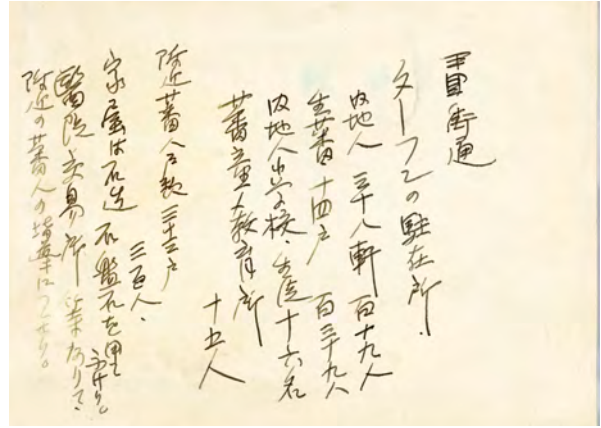 ターフンの駐在所.
内地人 三十八軒 百十九人
生蕃 十四戸 百三十九人
内地人小学校、生徒十六名
蕃童教育所 十五人
附近蕃人戸数三十三戸
三百人.
家屋は石造 石盤石を用て
ふけり。
醫院 交易所
附近の蕃人の